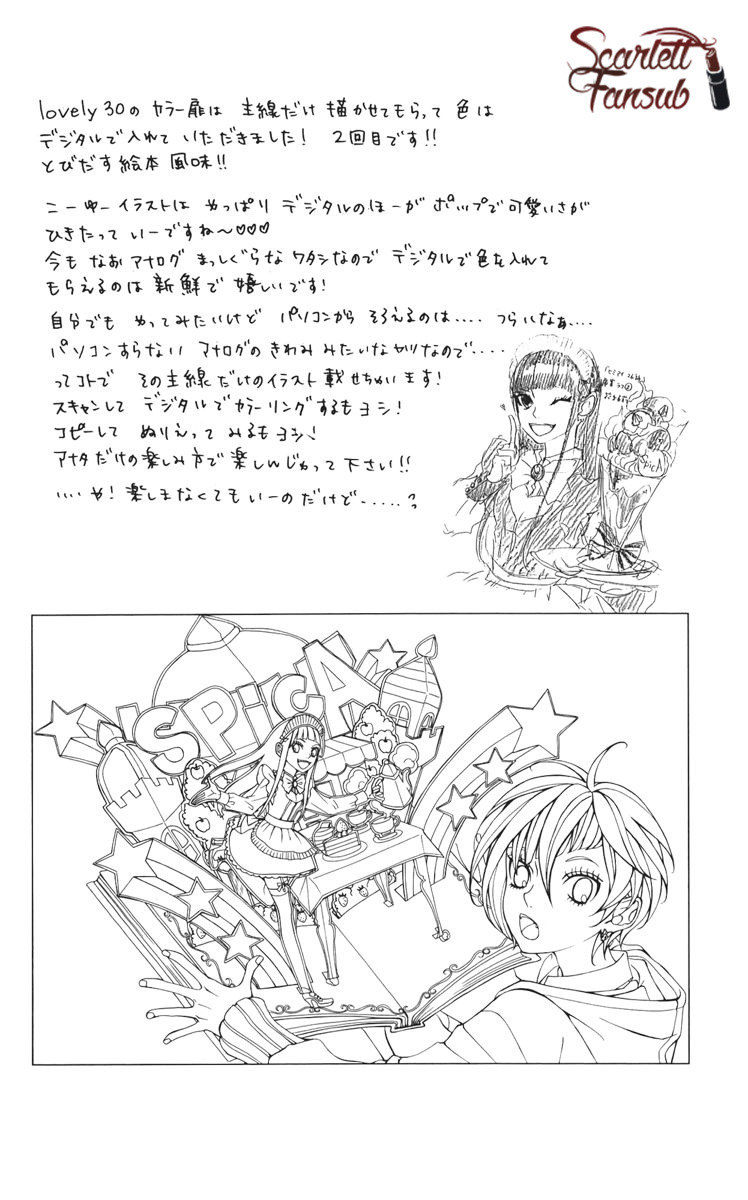 Scarlett
Fansub
lovely 30の カラー扉は 主線だけ 描かせてもらって 色は
デジタルで入れて いただきました! 2回目です!!
とびだす絵本 風味!!
こーゆーイラストは やっぱり デジタルのほーが ポップで可愛いさが
ひきたって いーですね〜♡♡♡
今も なお アナログ まっしぐらな ワタシなので デジタルで色を入れて
もらえるのは新鮮で 嬉しいです!
自分でも やってみたいけど パソコンから そろえるのは.... つらいなぁ....
パソコンすらない アナログのきわみ みたいなヤツなので.....
ってコトで その主線だけのイラスト 載せちゃいます!
スキャンして デジタルでカラーリングするもヨシ!
コピーして ぬりえって みるもヨシ!
アナタだけの楽しみ方で楽しんじゃって下さい!!
....や! 楽しまなくてもいーの だけど......
picA
SPicA